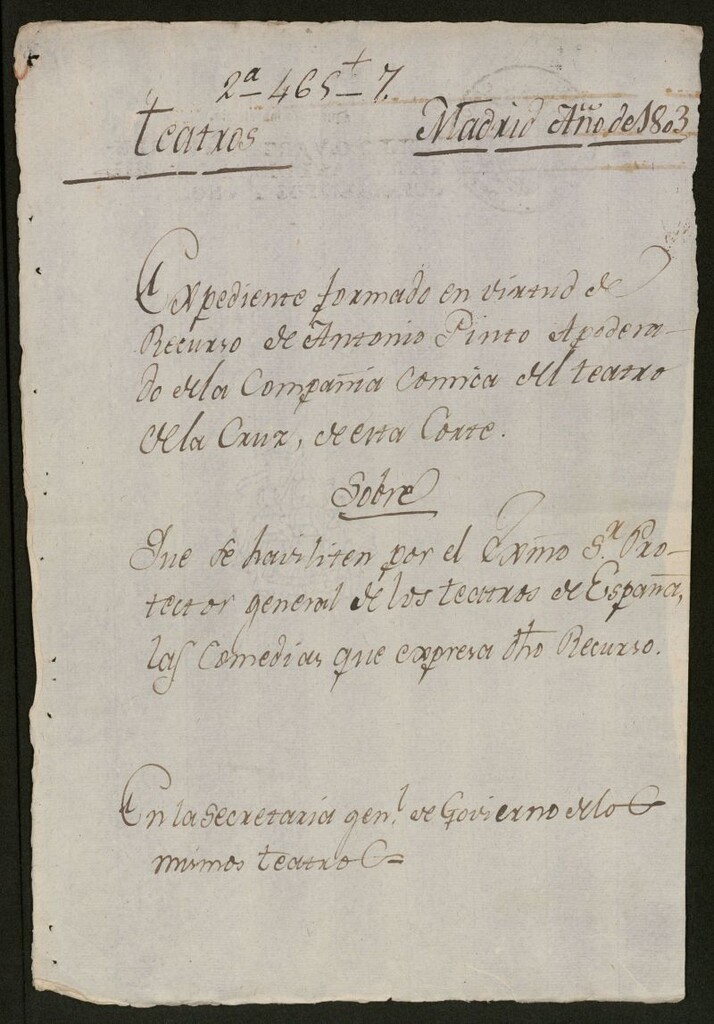 2ª 465 7.
Teatros
Madrid Año de 1803
Expediente formado en virtud de
Recurso de Antonio Pinto Apodera-
do de la Compañia Comica del teatro
de la Cruz, de esta Corte.
Sobre
Que se haviliten por el Exmo Sr. Pro-
tector general de los teatros de España,
las Comedias que expresa dho Recurso.
En la Secretaria genl. de Govierno de los
mismos teatros=